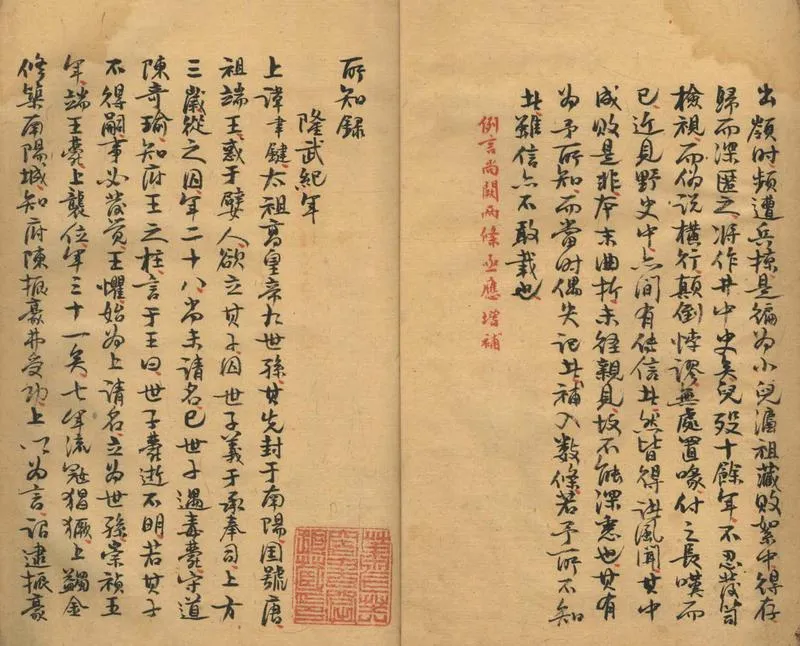 出嶺時頻遭兵掠是編為小兒灋祖藏敗絮中得存
歸而深匿之將作井中史矣兒殁十餘年不忍發笥
檢視而偽說橫行顛倒悖謬無處置喙付之長嘆而
已近見野史中亦間有傳信者然皆得諸風聞其中
成敗是非本末曲折未經親見故不能深悉也其有
為予所知而當時偶失記者補入數條若予所不知
者雖信亦不敢載也
例言尚闕兩條亟應增補
所知録
隆武紀年
上諱聿鍵太祖高皇帝九世孫其先封于南陽国號唐
祖端王惑于嬖人欲立其子囚世子義于承奉司上方
三歲從之囚年二十八尚未請名已世子遇毒薨守道
陳奇瑜知府王之柱言于王曰世子薨逝不明若其子
不得嗣事必發覺王懼始為上請名立為世孫崇禎五
年端王薨上襲位年三十一矣七年流寇猖獗上蠲金
修築南陽城知府陳振豪弗受功上以為言詔逮振豪